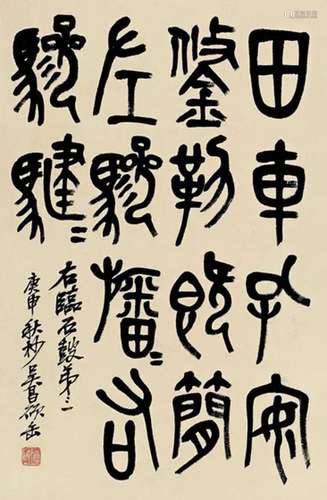 田車孔安
鋚勒既簡
左驂旛=右
驂騝=
右臨石鼓弟二
庚申秋杪吳昌碩